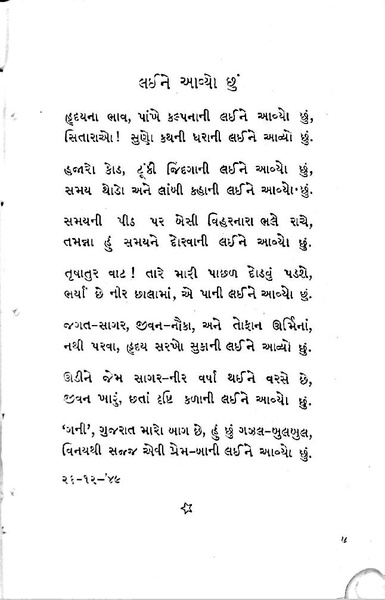 લઈને આવ્યો છું
હૃદયના ભાવ, પાંખે કલ્પનાની લઈને આવ્યો છું,
સિતારાઓ! સુણો કથની ધરાની લઈને આવ્યો છું.
હજારો કોડ, ટૂંકી જિંદગાની લઈને આવ્યો છું,
સમય થોડો અને લાંબી કહાની લઈને આવ્યો છું.
સમયની પીઠ પર બેસી વિહરનારા ભલે રાચે,
તમન્ના હું સમયને દોરવાની લઈને આવ્યો છું.
તૃષાતુર વાટ! તારે મારી પાછળ દોડવું પડશે,
ભર્યાં છે નીર છાલામાં, એ પાની લઈને આવ્યો છું.
જગત-સાગર, જીવન-નૌકા, અને તોફાન ઊર્મિનાં,
નથી પરવા, હૃદય સરખો સુકાની લઈને આવ્યો છું.
ઊડીને જેમ સાગર-નીર વર્ષા થઈને વરસે છે,
જીવન ખારું, છતાં દૃષ્ટિ કળાની લઈને આવ્યો છું.
'ગની', ગુજરાત મારો બાગ છે, હું છું ગઝલ-બુલબુલ,
વિનયથી સજ્જ એવી પ્રેમ-બાની લઈને આવ્યો છું.
૨૬-૧૨-'૪૯